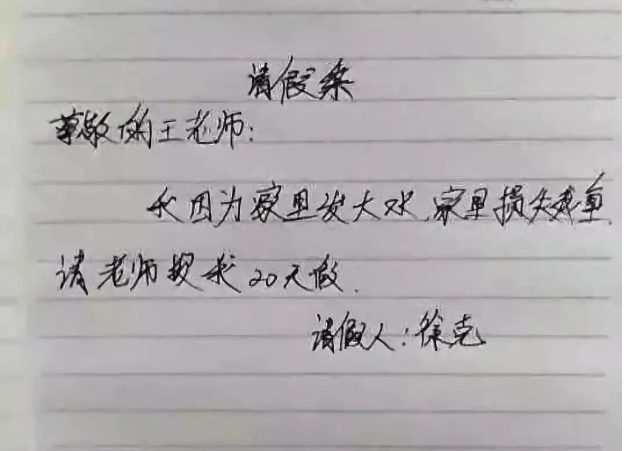 请假条
尊敬的王老师:
我因为家里发大水,家里损失惨重,
请老师批我20天假.
请假人:徐克